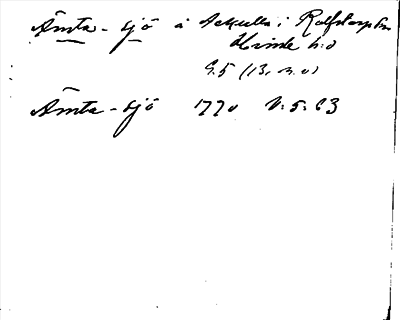 Ämta-sjö å Ackulla i Rolfstorp sn
Himle hd
G.5 (13, n.o)
Ämta-sjö 1770 V:5:63